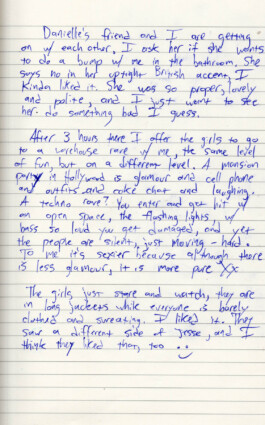 Danielle's friend and I are getting
on w/ each other. I ask her if she wants
to do a bump w/ me in the bathroom. She
says no in her uptight British accent. I
kinda liked it. She was so proper, lovely
and polite, and I just want to see
her do something bad I guess.
After 3 hours there I offer the girls to go
to a warehouse rave w/ me, the same level
of fun, but on a different level. A mansion
party in Hollywood is glamour and cell phone
and outfits and coke chat and laughing.
A techno rave? You enter and get hit w/
an open space, the flashing lights, w/
bass so loud you get damaged, and yet
the people are silent, just moving - hard.
To me it's sexier because although there
is less glamour, it is more pure XX
The girls just stare and watch, they are
in long jackets while everyone is barely
clothed and sweating. I liked it. They
saw a different side of Jesse, and I
think they liked that, too :)